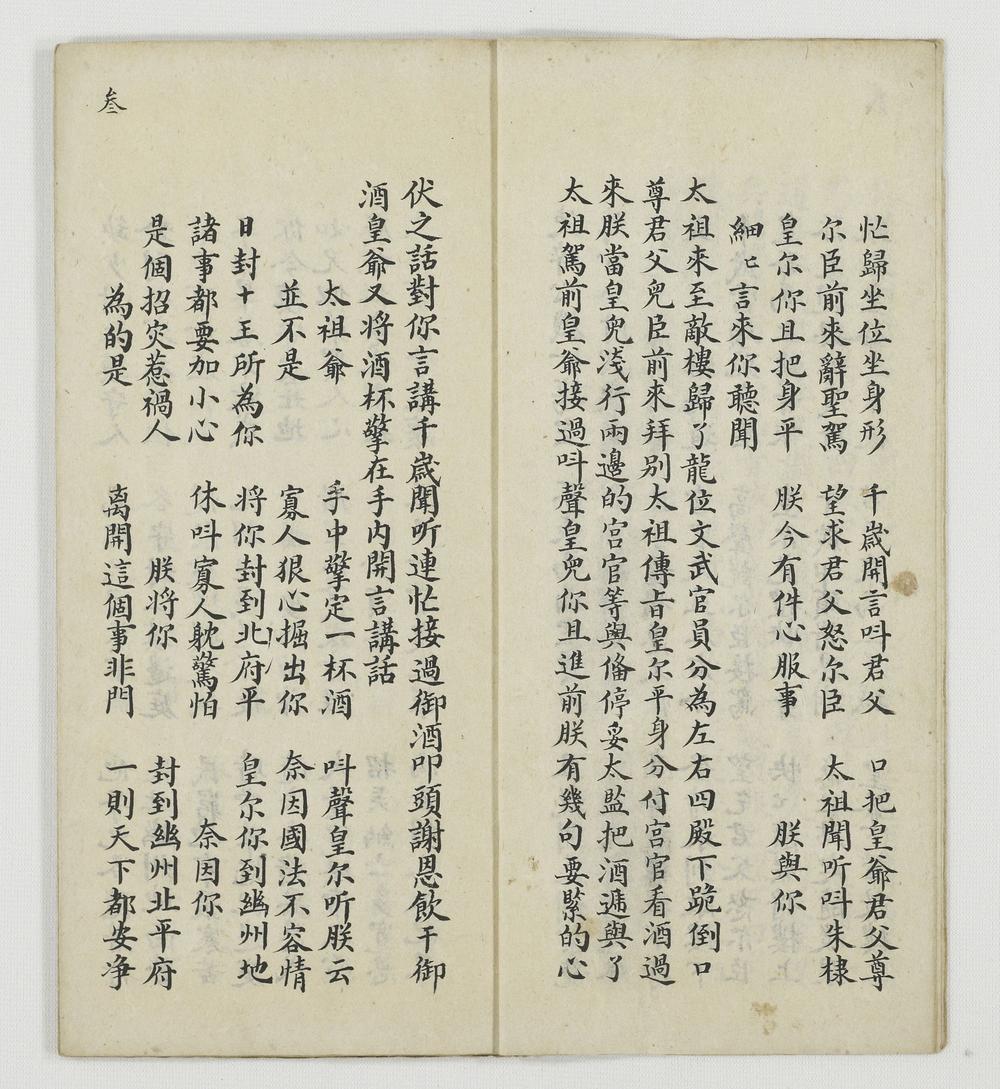 忙歸坐位坐身形 千歲開言呌君父 口把皇爺君父尊
尔臣前來辭聖駕 望求君父恕尔臣 太祖聞听呌朱棣
皇尔你且把身平 朕今有件心服事 朕與你
細匕言來你聽聞
太祖來至敵樓歸了龍位文武官員分為左右四殿下跪倒口
尊君父兒臣前來拜别太祖傳旨皇尔平身分付宫官看酒過
來朕當皇兒淺行兩邊的宫官等與俻停妥太監把酒遞與了
太祖駕前皇爺接過呌聲皇兒你且進前朕有幾句要緊的心
伏之話對你言講千歲聞听連忙接過御酒叩頭謝恩飲干御
酒皇爺又将酒杯擎在手内開言講話
太祖爺 手中擎定一杯酒 呌聲皇尔听朕云
並不是 寡人狠心掘出你 奈因國法不容情
日封十王所為你 将你封到北府平 皇尔你到幽州地
諸事都要加小心 休呌寡人躭驚怕 奈因你
是個招灾惹禍人 朕将你 封到幽州北平府
為的是 离開這個事非門 一則天下都安净
叁